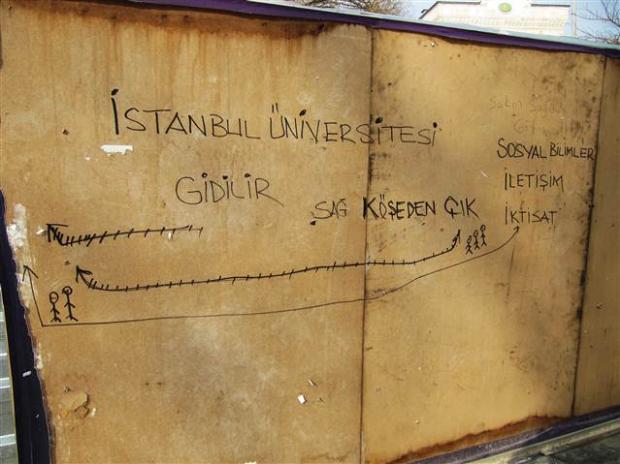 İSTANBUL ÜNİVERSİTESİ
GİDİLİR
SAĞ KÖŞEDEN ÇIK
SOSYAL BİLİMLER
İLETİŞİM
İKTİSAT